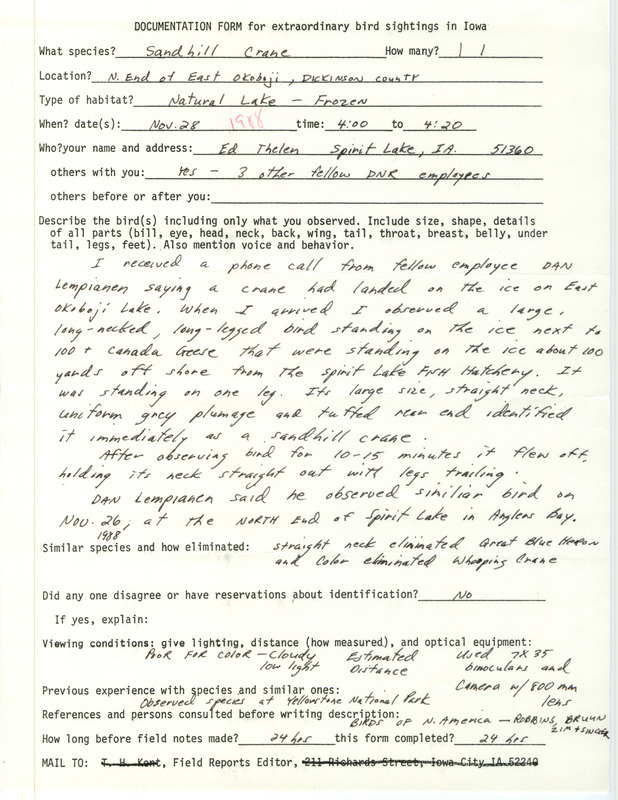 DOCUMENTATION FORM for extraordinary bird sightings in Iowa
What species? Sandhill Crane How many? 1
Location? N. End of East Okoboji, Dickinson county
Type of habitat? Natural Lake – Frozen
When? date(s): Nov. 28 1988 time: 4:00 to 4:20
Who?your name and address: Ed Thelen Spirit Lake, IA. 51360
others with you: Yes – 3 other fellow DNR employees
others before or after you:
Describe the bird(s) including only what you observed. Include size, shape, details
of all parts (bill, eye, head, neck, back, wing, tail, throat, breast, belly, under
tail, legs, feet). Also mention voice and behavior.
I received a phone call from fellow employee DAN
Lempianen saying a crane had landed on the ice on East
Okoboji Lake. When I arrived I observed a large,
long-necked, long-legged bird standing on the ice next to
100 + Canada Geese that were standing on the ice about 100
yards off shore from the Spirit Lake Fish Hatchery. It
was standing on one leg. Its large size, straight neck,
uniform grey plumage and tufted rear end identified
it immediately as a sandhill crane.
After observing bird for 10-15 minutes it flew off,
holding its neck straight out with legs trailing.
DAN Lempianen said he observed similiar bird on
Nov. 26, at the North End of Spirit Lake in Anglers Bay.
1988
Similar species and how eliminated: straight neck eliminated Great Blue Heron
and color eliminated Whooping Crane
Did any one disagree or have reservations about identification? No
If yes, explain:
Viewing conditions: give lighting, distance (how measured), and optical equipment:
Poor for color – Cloudy Estimated Used 7X35
low light Distance binoculars and
Previous experience with species and similar ones: Camera w/ 800 mm
Observed species at Yellowstone National Park lens
References and persons consulted before writing description:
Birds of N. America – Robbins, Bruun
Zim + Singer
How long before field notes made? 24 hrs this form completed? 24 hrs
MAIL TO: T. H. Kent, Field Reports Editor, 211 Richards Street, Iowa City, IA 52240